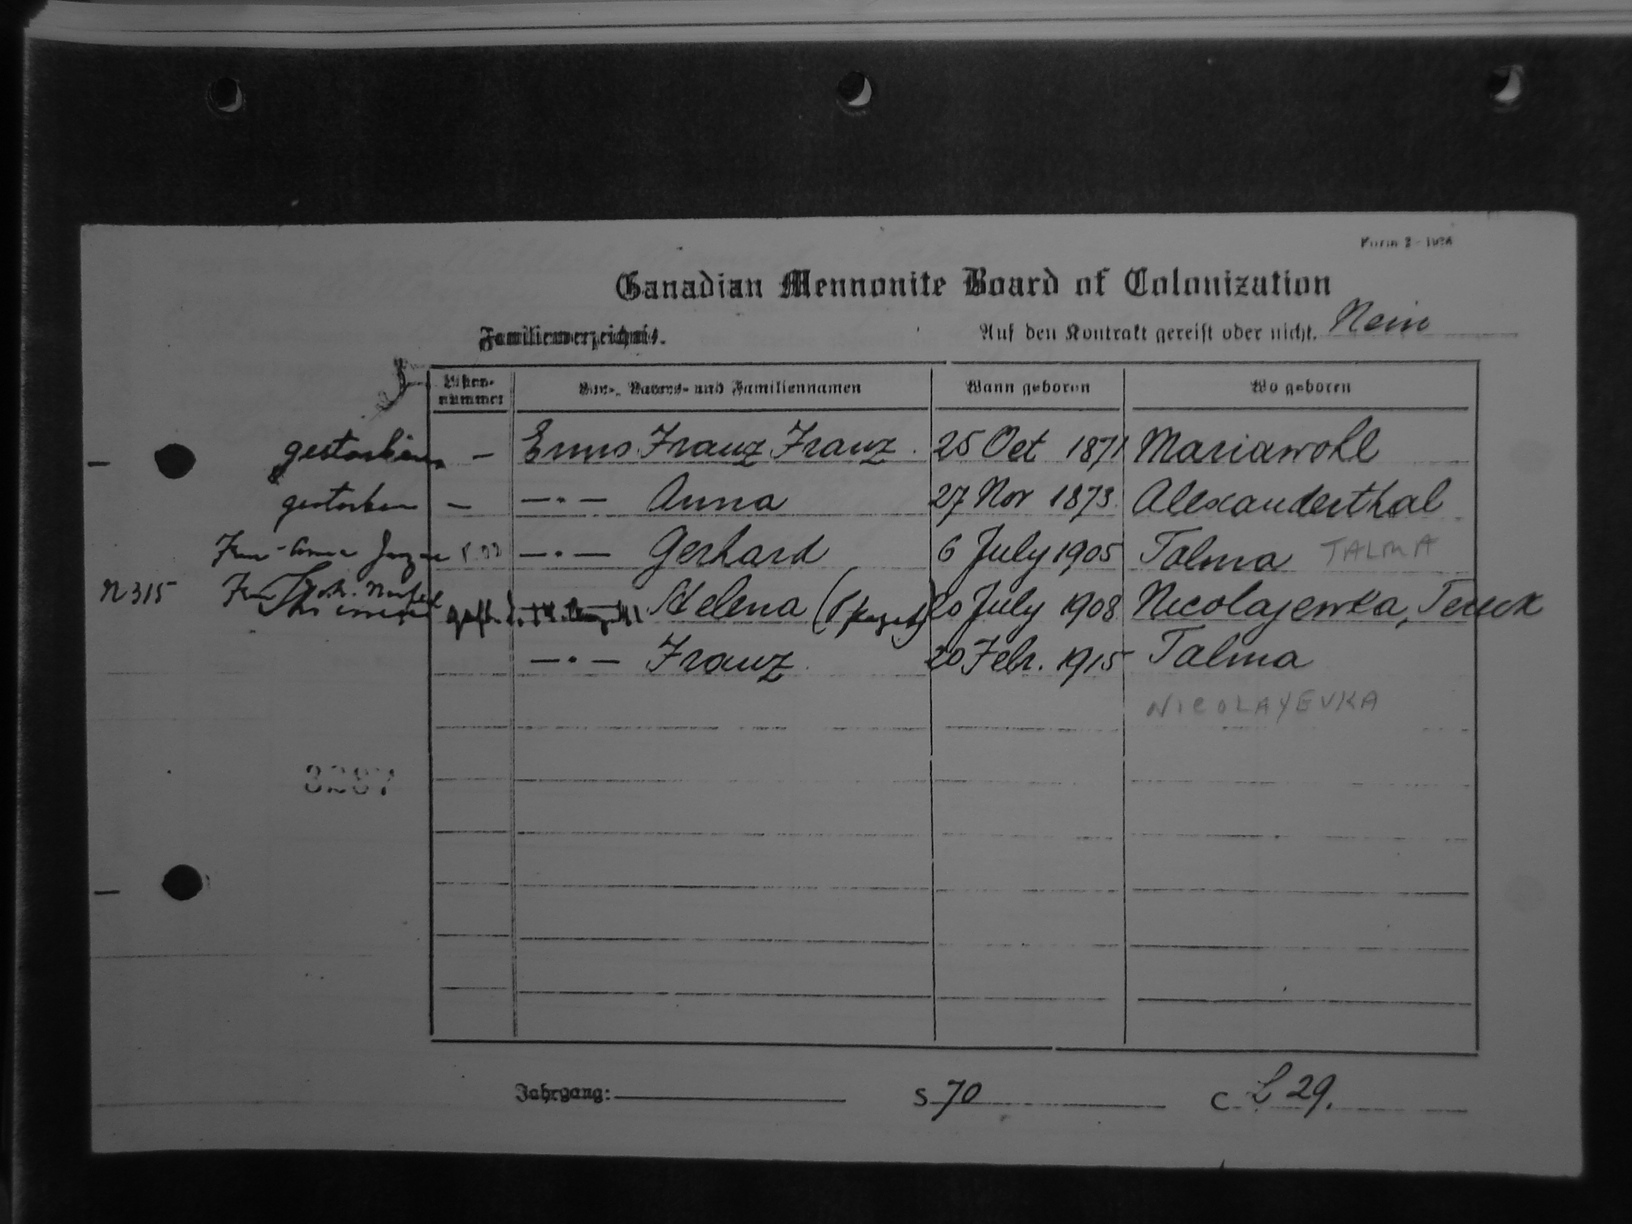 Form 2 - 1926
Canadian Mennonite Board of Colonization
Familienverzeichnis. Auf den Kontrakt gereist oder nicht. Nein
Listen-nummer Vor-, Vaters- und Familiennamen Wann geboren Wo geboren
gestorben - Enns Franz Franz. 25 Oct 1871 Mariawohl
gestorben - — · — Anna 27 Nov 1873 Alexanderthal
— · — Gerhard 6 July 1905 Talma TALMA
N 315 Helena 20 July 1908 Nicolajewka, Tereck
— · — Franz 20 Febr. 1915 Talma
NICOLAYEVKA
3287
Jahrgang: S 70 C L 29.